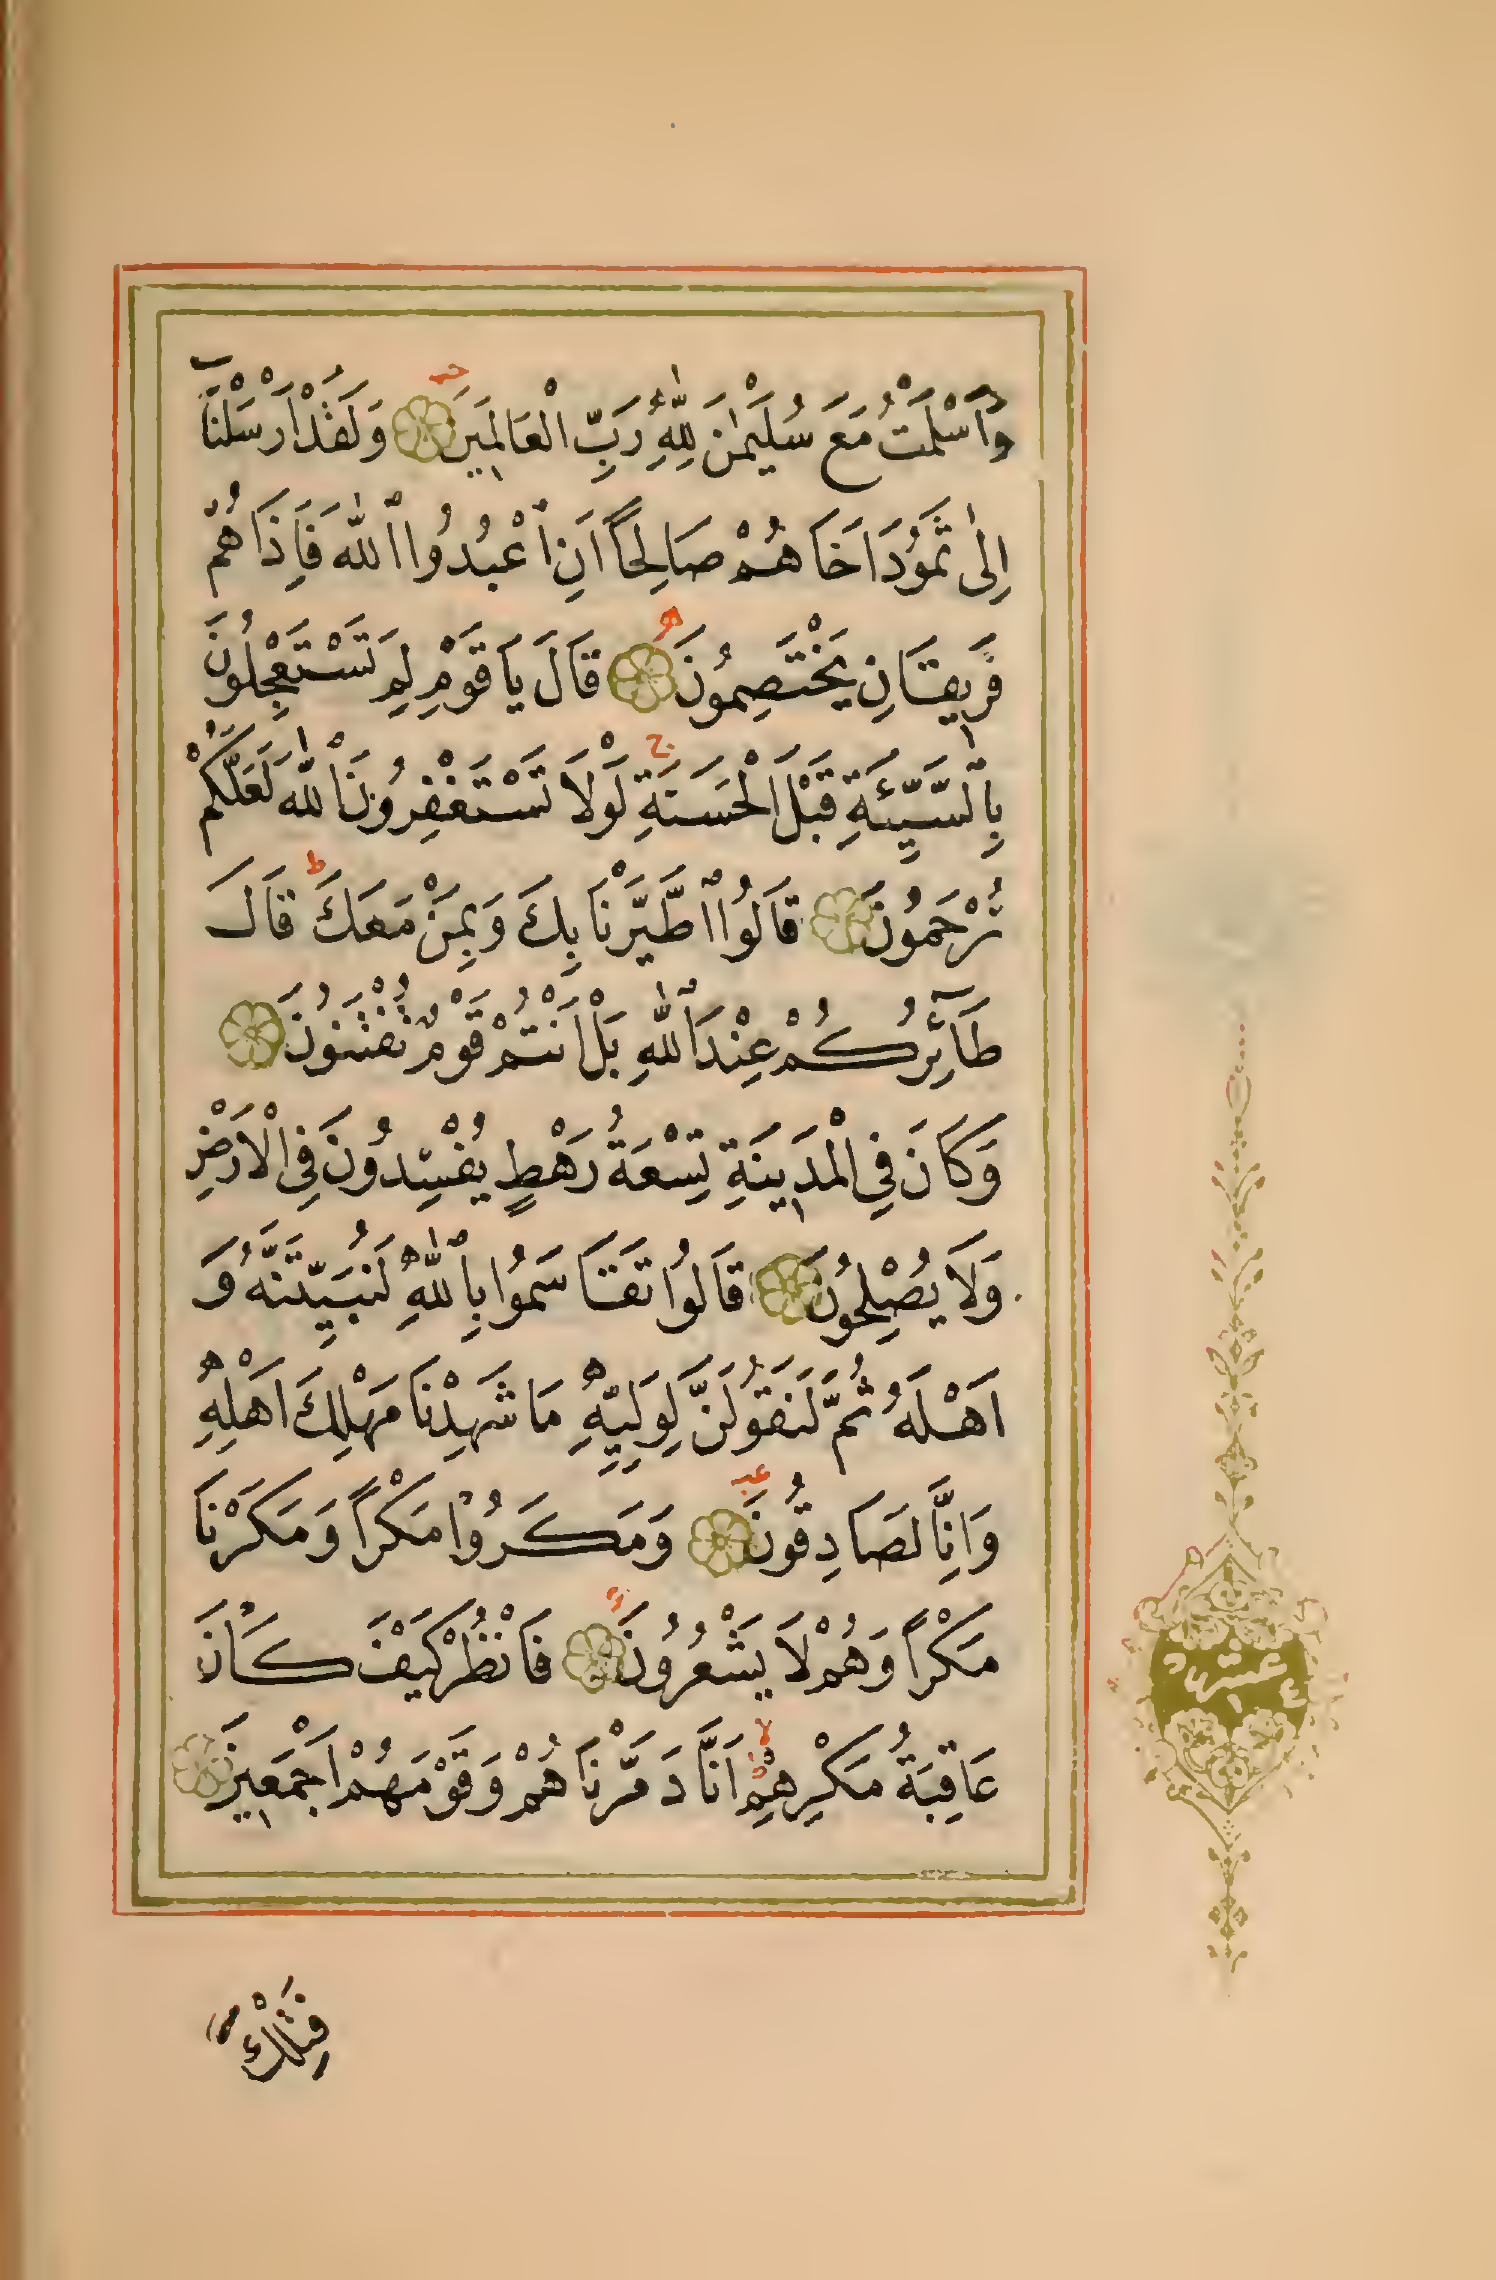 وَاَسْلَمْتُ مَعَ سُلَيْمٰنَ لِلّٰهِ رَبِّ الْعَالَمِينَ وَلَقَدْ اَرْسَلْنَٓا
اِلٰى ثَمُودَ اَخَاهُمْ صَالِحًا اَنِ اعْبُدُوا اللّٰهَ فَاِذَا هُمْ
فَرِيقَانِ يَخْتَصِمُونَ قَالَ يَا قَوْمِ لِمَ تَسْتَعْجِلُونَ
بِالسَّيِّئَةِ قَبْلَ الْحَسَنَةِ لَوْلَا تَسْتَغْفِرُونَ اللّٰهَ لَعَلَّكُمْ
تُرْحَمُونَ قَالُوا اطَّيَّرْنَا بِكَ وَبِمَنْ مَعَكَ قَالَ
طَٓائِرُكُمْ عِنْدَ اللّٰهِ بَلْ اَنْتُمْ قَوْمٌ تُفْتَنُونَ
وَكَانَ فِي الْمَدِينَةِ تِسْعَةُ رَهْطٍ يُفْسِدُونَ فِي الْاَرْضِ
وَلَا يُصْلِحُونَ قَالُوا تَقَاسَمُوا بِاللّٰهِ لَنُبَيِّتَنَّهُ وَ
اَهْلَهُ ثُمَّ لَنَقُولَنَّ لِوَلِيِّهِ مَا شَهِدْنَا مَهْلِكَ اَهْلِهِ
وَاِنَّا لَصَادِقُونَ وَمَكَرُوا مَكْرًا وَمَكَرْنَا
مَكْرًا وَهُمْ لَا يَشْعُرُونَ فَانْظُرْ كَيْفَ كَانَ
عَاقِبَةُ مَكْرِهِمْ اَنَّا دَمَّرْنَاهُمْ وَقَوْمَهُمْ اَجْمَعِينَ
فَتِلْكَ